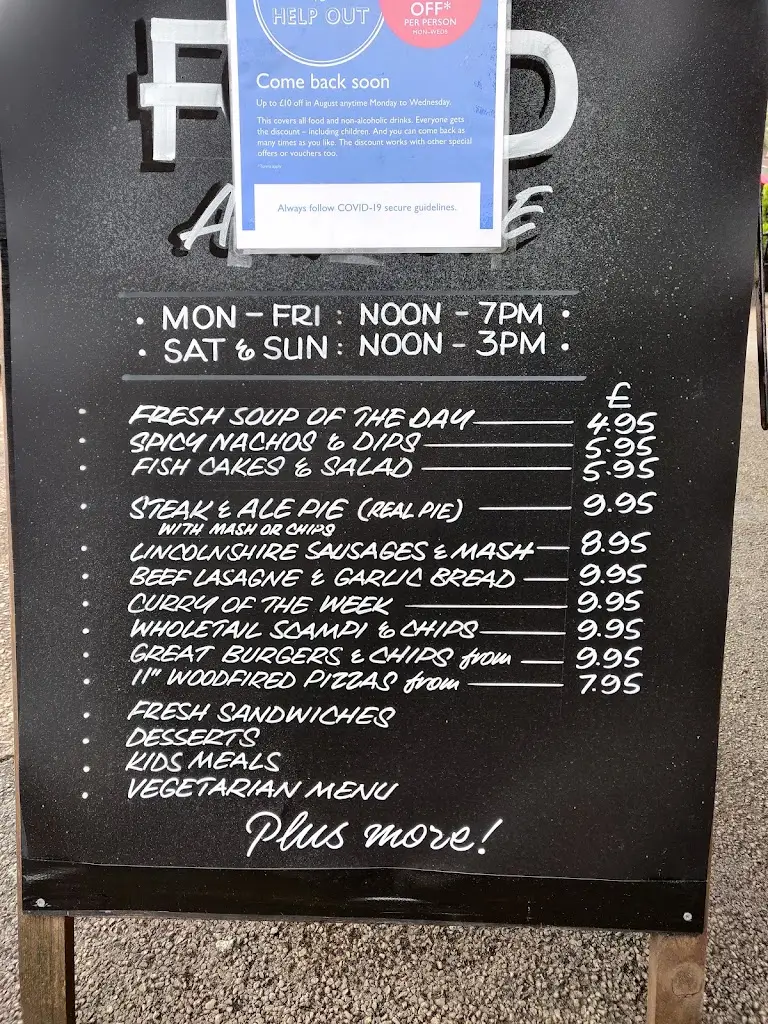 HELP OUT
OFF*
PER PERSON
MON-WEDS
Come back soon
Up to £10 off in August anytime Monday to Wednesday.
This covers all food and non-alcoholic drinks. Everyone gets
the discount – including children. And you can come back as
many times as you like. The discount works with other special
offers or vouchers too.
Always follow COVID-19 secure guidelines.
• MON – FRI : NOON – 7PM •
• SAT & SUN : NOON – 3PM •
£
• FRESH SOUP OF THE DAY — 4.95
• SPICY NACHOS & DIPS — 5.95
• FISH CAKES & SALAD — 5.95
• STEAK & ALE PIE (REAL PIE) — 9.95
WITH MASH OR CHIPS
• LINCOLNSHIRE SAUSAGES & MASH — 8.95
• BEEF LASAGNE & GARLIC BREAD — 9.95
• CURRY OF THE WEEK — 9.95
• WHOLETAIL SCAMPI & CHIPS — 9.95
• GREAT BURGERS & CHIPS from — 9.95
• 11" WOODFIRED PIZZAS from — 7.95
• FRESH SANDWICHES
• DESSERTS
• KIDS MEALS
• VEGETARIAN MENU
Plus more!